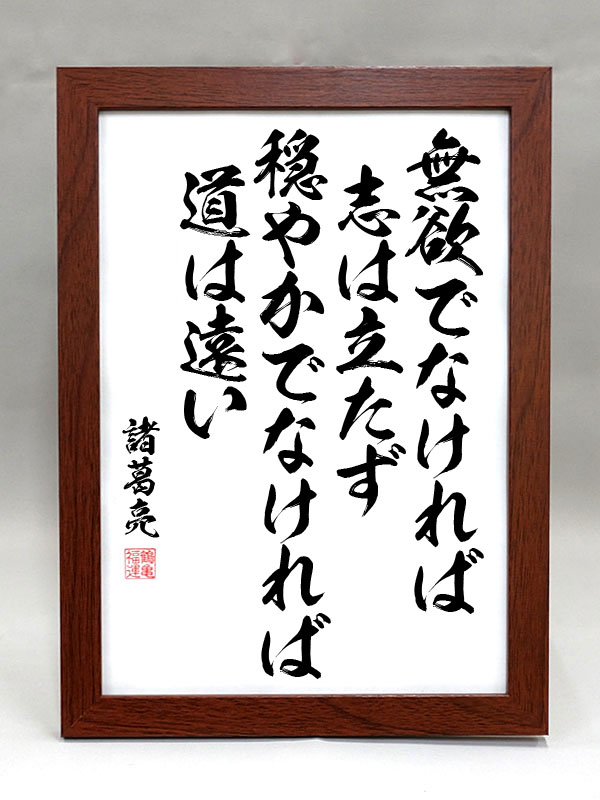 無欲でなければ
志は立たず
穏やかでなければ
道は遠い
諸葛亮
鶴亀
福運